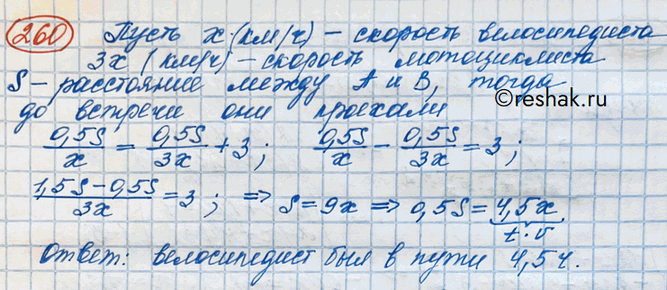 260 Пусть x (км/ч) – скорость велосипедиста
3x (км/ч) – скорость мотоциклиста
S – расстояние между A и B, тогда
до встречи они проехали
©reshak.ru
0,5S/x = 0,5S/3x + 3; 0,5S/x − 0,5S/3x = 3;
1,5S − 0,5S/3x = 3; ⇒ S = 9x ⇒ 0,5S = 4,5x
t·v
Ответ: велосипедист был в пути 4,5 ч.